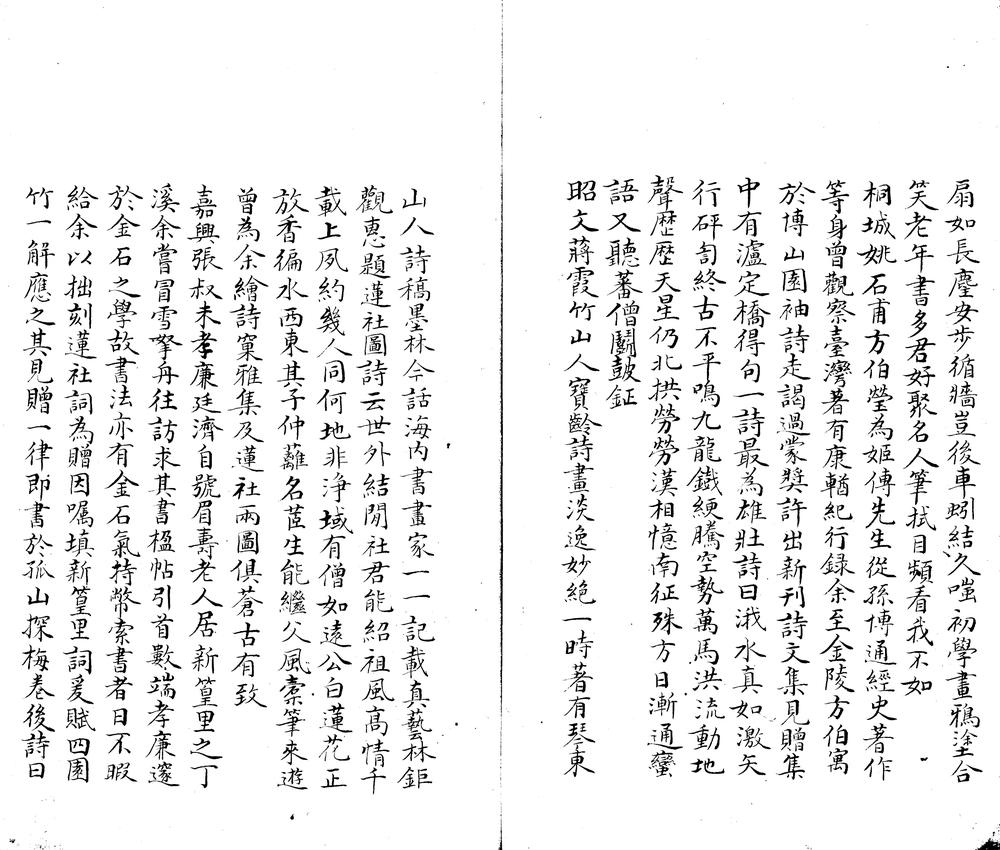 扇如長麈安步循牆豈後車蚓結久嗤初學畫鴉塗合
笑老年書多君好聚名人筆拭目頻看我不如
桐城姚石甫方伯瑩為姬傳先生從孫博通經史著作
等身曾觀察臺灣著有康輶紀行録余至金陵方伯寓
於博山園袖詩走謁過蒙奬許出新刊詩文集見贈集
中有瀘定橋得句一詩最為雄壯詩曰涐水真如激矢
行砰訇終古不平鳴九龍鐵綆騰空勢萬馬洪流動地
聲歴歴天星仍北拱勞勞漢相憶南征殊方日漸通蠻
語又聽蕃僧鬭鼓鉦
昭文蔣霞竹山人寳齡詩畫淡逸妙絶一時著有琴東
山人詩稿墨林今話海内書畫家一一記載真藝林鉅
觀惠題蓮社圖詩云世外結閒社君能紹祖風高情千
載上夙約幾人同何地非淨域有僧如遠公白蓮花正
放香徧水西東其子仲蘺名茝生能繼父風橐筆來遊
曾為余繪詩窠雅集及蓮社兩圖俱蒼古有致
嘉興張叔未孝廉廷濟自號眉壽老人居新篁里之丁
溪余嘗冒雪拏舟往訪求其書楹帖引首數端孝廉邃
於金石之學故書法亦有金石氣持幣索書者日不暇
給余以拙刻蓮社詞為贈因嘱填新篁里詞爰賦四園
竹一解應之其見贈一律即書於孤山探梅卷後詩曰